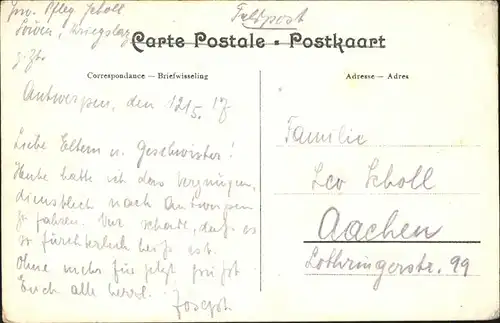 Feldpost
Pfleg. Scholl
Löwen, Kriegslaz.
Carte Postale - Postkaart
Correspondance — Briefwisseling
Adresse — Adres
Antwerpen, den 12/5. 17
Liebe Eltern u. Geschwister!
Heute hatte ich das Vergnügen,
dienstlich nach Antwerpen
zu fahren. Nur schade, daß es
so fürchterlich heiß ist.
Ohne mehr für jetzt grüßt
Euch alle herzl.
Joseph
Familie
Leo Scholl
Aachen
Lothringerstr. 99